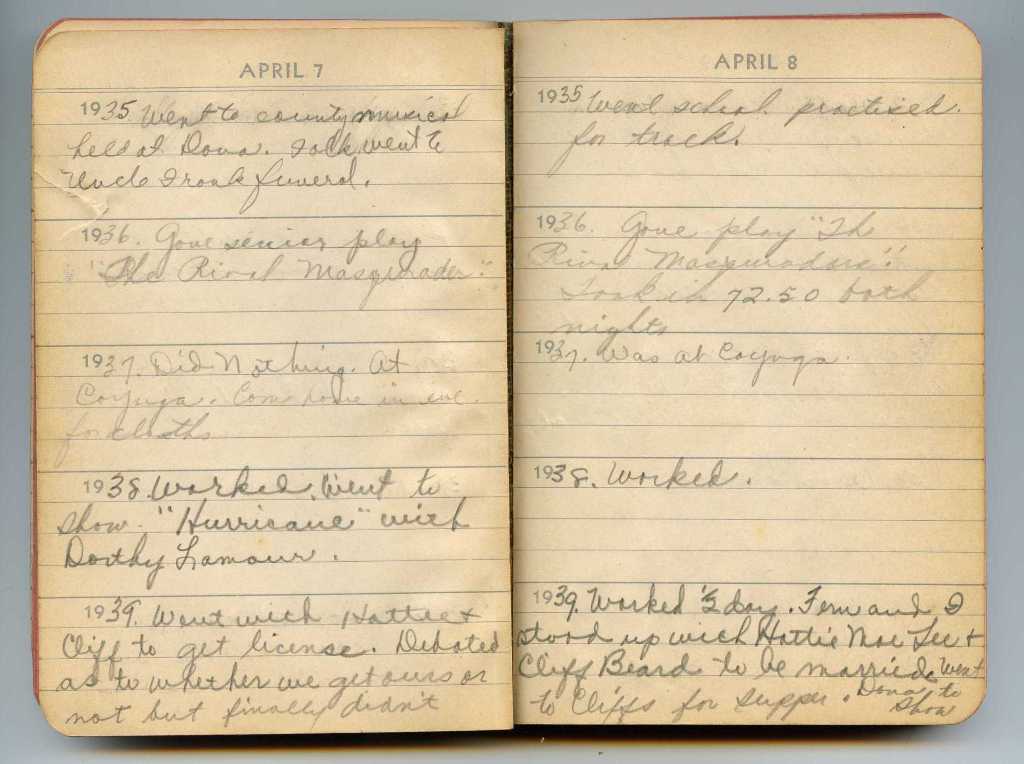 APRIL 7
1935 Went to county musical
held at Dona. Folk went to
Uncle Frank funeral.
1936. Gave senior play
"The Rival Masqurader".
1937. Did Nothing. At
Cayuga. Com home in eve.
for cloths
1938. Worked. Went to
show "Hurricane" with
Dorthy Lamour.
1939. Went with Hattie +
Cliff to get license. Debated
as to whether we get ours or
not but finally didn't
APRIL 8
1935 Went school practised
for track.
1936. Gave play "Th
Rival Masquraders".
Took in 72.50 both
nights
1937. Was at Cayuga.
1938. Worked.
1939. Worked ½ day. Fern and I
stood up with Hattie Mae Lee +
Cliff Beard to be married. Went
to Cliffs for supper. Dana to
Show